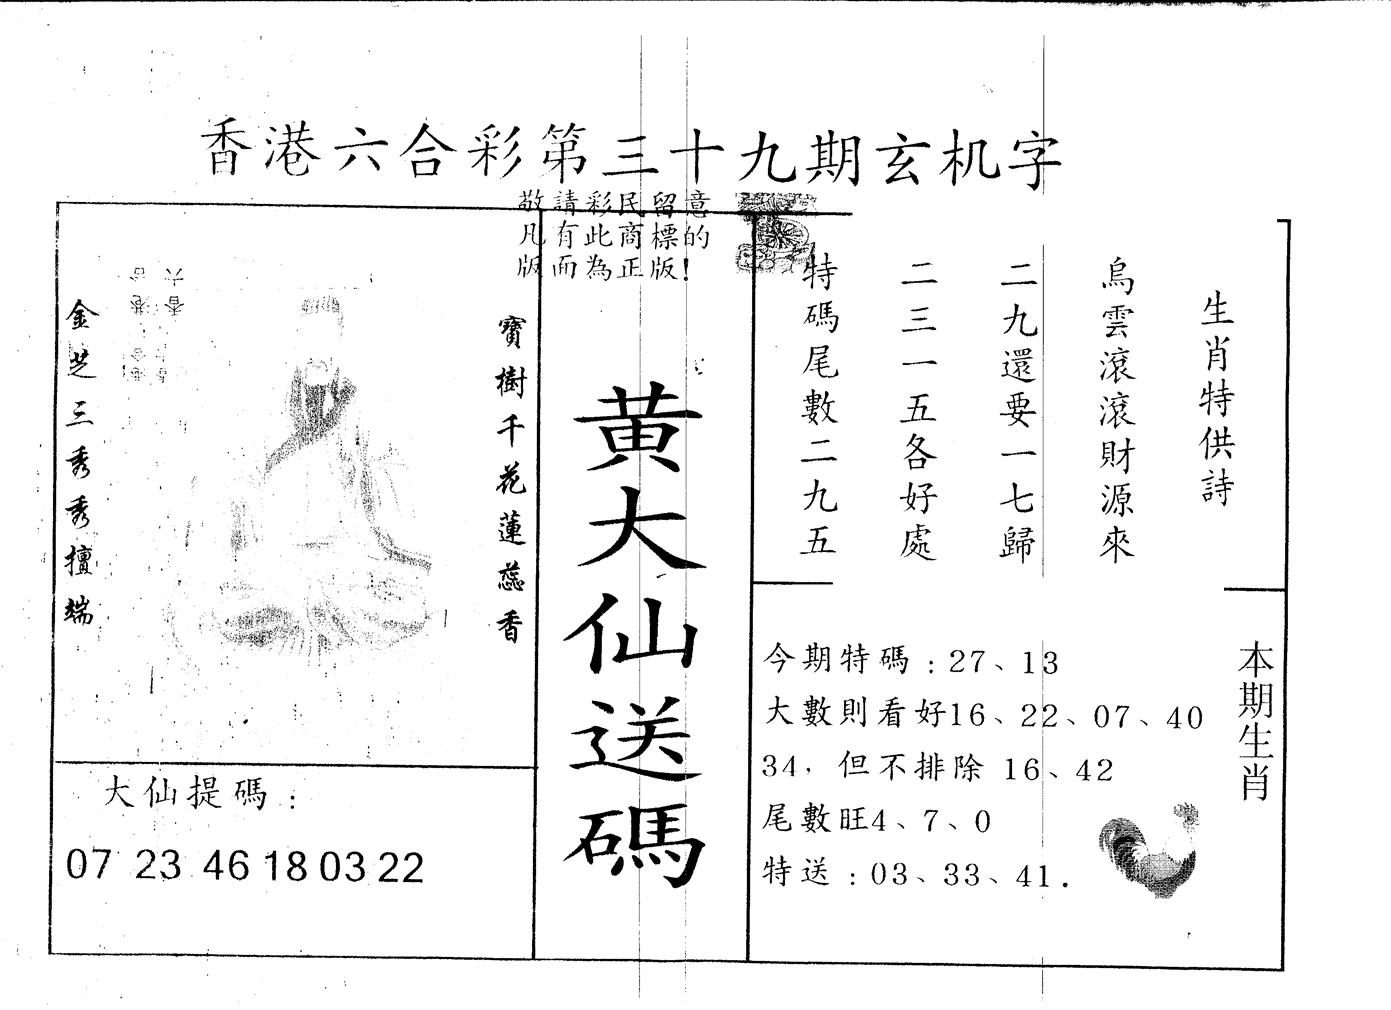 香港六合彩第三十九期玄机字
敬請彩民留意
凡有此商標的
版面為正版!
生肖特供詩
烏雲滾滾財源來
二九還要一七歸
二三一五各好處
特碼尾數二九五
黄大仙送碼
寶樹千花蓮蕊香
金芝三秀秀擅端
大仙提碼:
07 23 46 18 03 22
本期生肖
今期特碼:27、13
大數則看好16、22、07、40
34,但不排除 16、42
尾數旺4、7、0
特送:03、33、41.